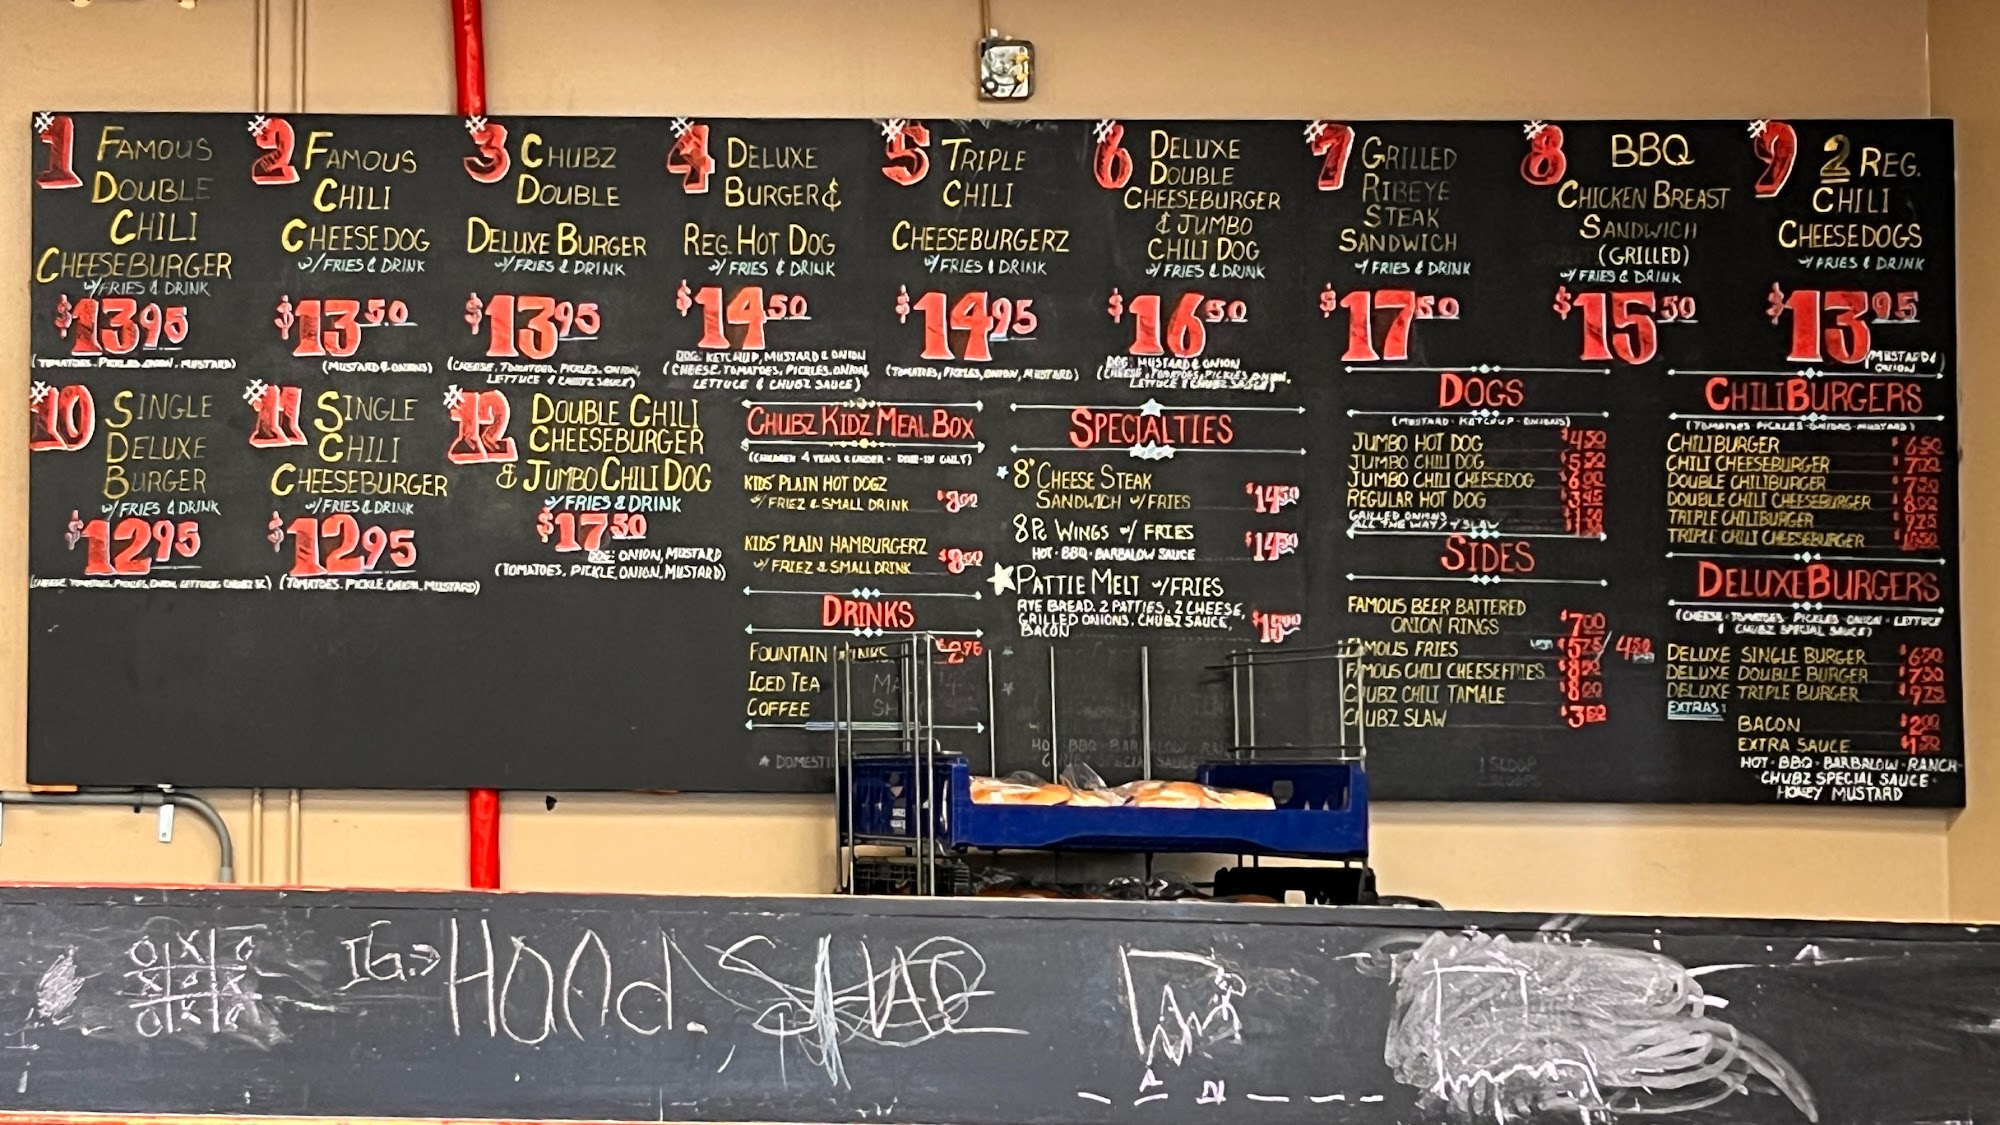 #1
FAMOUS
DOUBLE
CHILI
CHEESEBURGER
W/FRIES & DRINK
$13.95
(TOMATOES, PICKLES, ONION, MUSTARD)
#2
FAMOUS
CHILI
CHEESEDOG
W/FRIES & DRINK
$13.50
(MUSTARD & ONIONS)
#3
CHUBZ
DOUBLE
DELUXE BURGER
W/FRIES & DRINK
$13.95
(CHEESE, TOMATOES, PICKLES, ONION,
LETTUCE & CHUBZ SAUCE)
#4
DELUXE
BURGER &
REG. HOT DOG
W/ FRIES & DRINK
$14.50
DOG: KETCHUP, MUSTARD & ONION
(CHEESE, TOMATOES, PICKLES, ONION,
LETTUCE & CHUBZ SAUCE)
#5
TRIPLE
CHILI
CHEESEBURGERZ
W/FRIES & DRINK
$14.95
(TOMATOES, PICKLES, ONION, MUSTARD)
#6
DELUXE
DOUBLE
CHEESEBURGER
& JUMBO
CHILI DOG
W/ FRIES & DRINK
$16.50
DOG: MUSTARD & ONION
(CHEESE, TOMATOES, PICKLES, ONION,
LETTUCE & CHUBZ SAUCE)
#7
GRILLED
RIBEYE
STEAK
SANDWICH
W/ FRIES & DRINK
$17.50
#8
BBQ
CHICKEN BREAST
SANDWICH
(GRILLED)
W/ FRIES & DRINK
$15.50
#9
2 REG.
CHILI
CHEESEDOGS
W/ FRIES & DRINK
$13.95
(MUSTARD &
ONION
#10
SINGLE
DELUXE
BURGER
W/FRIES & DRINK
$12.95
(CHEESE, TOMATOES, PICKLES, ONION, LETTUCE, CHUBZ SC)
#11
SINGLE
CHILI
CHEESEBURGER
W/FRIES & DRINK
$12.95
(TOMATOES, PICKLE, ONION, MUSTARD)
#12
DOUBLE CHILI
CHEESEBURGER
& JUMBO CHILI DOG
W/FRIES & DRINK
$17.50
DOG: ONION, MUSTARD
(TOMATOES, PICKLE, ONION, MUSTARD)
CHUBZ KIDZ MEAL BOX
(CHILDREN 4 YEARS & UNDER - DINE-IN ONLY)
KIDS' PLAIN HOT DOGZ
W/ FRIEZ & SMALL DRINK $8.00
KIDS' PLAIN HAMBURGERZ
W/ FRIEZ & SMALL DRINK $8.00
DRINKS
FOUNTAIN $2.95
ICED TEA
COFFEE
DOMESTIC
SPECIALTIES
8" CHEESE STEAK
SANDWICH W/FRIES $14.50
8 PC WINGS W/ FRIES
HOT · BBQ · BARBALOW SAUCE $14.50
PATTIE MELT W/FRIES
RYE BREAD, 2 PATTIES, 2 CHEESE,
GRILLED ONIONS, CHUBZ SAUCE,
BACON $15.00
DOGS
(MUSTARD · KETCHUP · ONIONS)
JUMBO HOT DOG $4.50
JUMBO CHILI DOG $5.50
JUMBO CHILI CHEESEDOG $6.00
REGULAR HOT DOG $3.45
GRILLED ONIONS
ALL THE WAY / + SLAW
SIDES
FAMOUS BEER BATTERED
ONION RINGS $7.00
FAMOUS FRIES $5.75 / 4.50
FAMOUS CHILI CHEESEFRIES $8.50
CHUBZ CHILI TAMALE $8.00
CHUBZ SLAW $3.50
1 SCOOP
CHILIBURGERS
(TOMATOES · PICKLES · ONIONS · MUSTARD)
CHILIBURGER $6.50
CHILI CHEESEBURGER $7.00
DOUBLE CHILIBURGER $7.50
DOUBLE CHILI CHEESEBURGER $8.00
TRIPLE CHILIBURGER $9.75
TRIPLE CHILI CHEESEBURGER $10.50
DELUXE BURGERS
(CHEESE · TOMATOES · PICKLES · ONION · LETTUCE
& CHUBZ SPECIAL SAUCE)
DELUXE SINGLE BURGER $6.50
DELUXE DOUBLE BURGER $7.50
DELUXE TRIPLE BURGER $9.75
EXTRAS:
BACON $2.00
EXTRA SAUCE $1.50
HOT · BBQ · BARBALOW · RANCH
· CHUBZ SPECIAL SAUCE ·
HONEY MUSTARD
O X O
X O X
O X O
IG:→ HOOd.